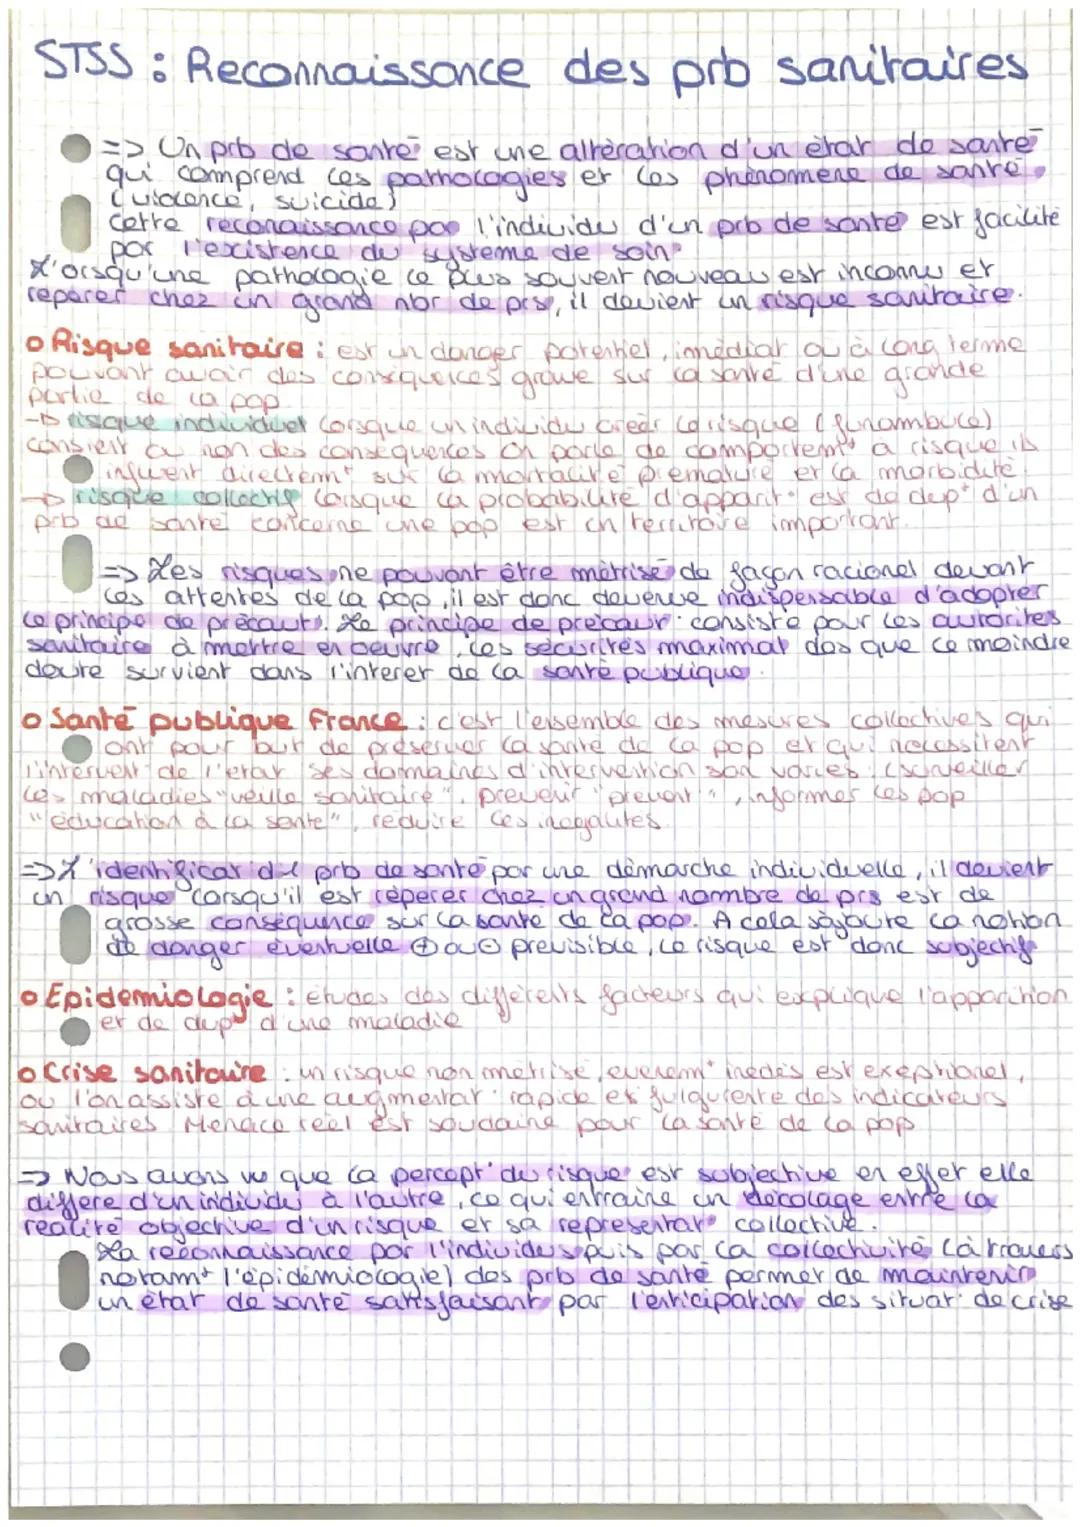 STSS : Reconnaissance des prb sanitaires
=> Un prb de santé est une altération d'un état de santé
qui comprend les pathologies et les phénomène de santé
(violence, suicide)
Cette reconaissance par l'individu d'un prb de santé est facilité
par l'existence du systeme de soin
L'orsqu'une pathologie le plus souvent nouveau est inconnu et
reperer chez un grand nbr de prs, il devient un risque sanitaire.
o Risque sanitaire : est un danger potentiel, imédiat ou à long terme
pouvant avoir des consquences grave sur la santé d'une grande
partie de la pop
-> risque individuel lorsque un individu créer le risque (funambule)
consient ou non des consequences On parle de comportemt à risque ils
influent directemt sur la mortalité prematuré et la morbidité
-> risque collectif lorsque la probabilité d'apparit° est de dept d'un
prb de santé concerne une pop est un territoire important.
=> Les risques ne pouvant être métrisé de façon racionel devant
les attentes de la pop, il est donc devenue indispensable d'adopter
le principe de précaut°. Le principe de précaut° consiste pour les autorités
sanitaire à mettre en oeuvre, les sécurités maximal des que le moindre
doute survient dans l'interer de la santé publique.
o Santé publique France : c'est l'ensemble des mesures collectives qui
ont pour but de préserver la santé de la pop et qui necessitent
l'intervent° de l'état ses domaines d'intervention son variés : (surveiller
les maladies "veille sanitaire", prevenir "prevent°", informer les pop
"éducation à la santé", reduire les inégalités.
=> L'identificat° d'1 prb de santé par une démarche individuelle, il devient
un risque lorsqu'il est repérer chez un grand nombre de prs est de
grosse conséqunce sur la santé de la pop. A cela s'ajoute la notion
de danger éventuelle ⊕ ou ⊖ previsible, le risque est donc subjectif
o Epidemiologie : études des différents facteurs qui explique l'apparition
et de dupt d'une maladie
o Crise sanitaire : un risque non métrisé, evenemt inedis est exeptionel,
ou l'on assiste à une augmentat° rapide et fulgurente des indicateurs
sanitaires Menace réel est soudaine pour la santé de la pop
=> Nous avons vu que la percept° du risque est subjective en effet elle
differe d'un individu à l'autre, ce qui entraine un décolage entre la
realité objective d'un risque et sa représentat° collective.
La reconnaissance par l'individus puis par la collectivité (à travers
notamt l'épidémiologie) des prb de santé permet de maintenir
un état de santé satisfaisant par l'enticipation des situat° de crise